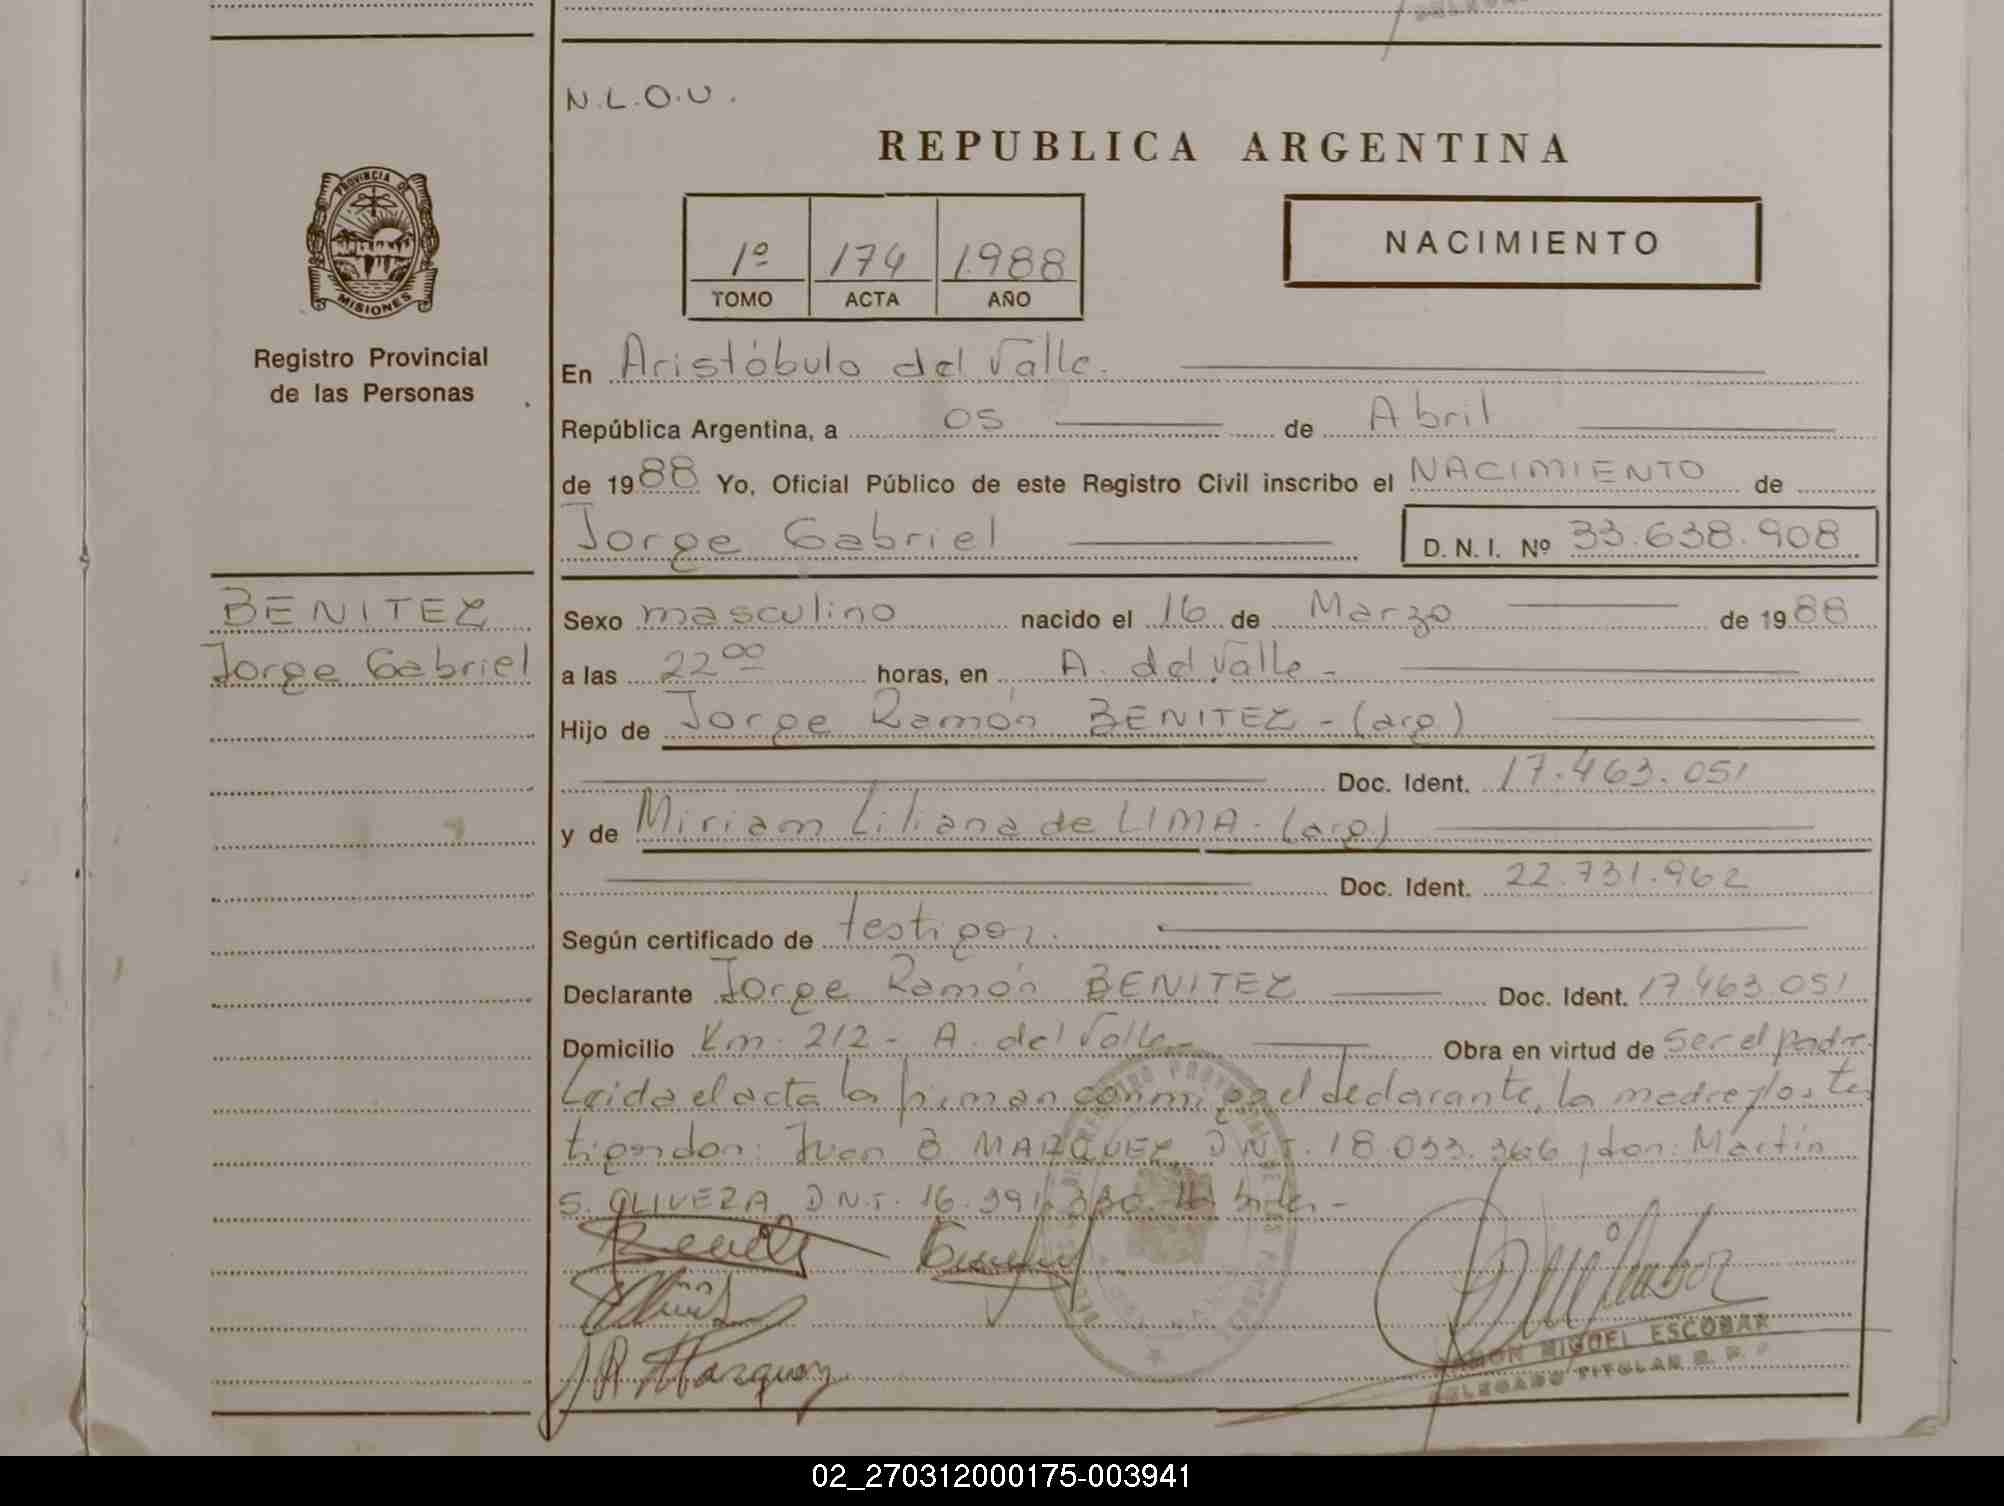 N.L.O.U.
REPUBLICA ARGENTINA
PROVINCIA DE
MISIONES
Registro Provincial
de las Personas
1º 174 1988
TOMO ACTA AÑO
NACIMIENTO
En Aristóbulo del Valle.
República Argentina, a 05 de Abril
de 1988 Yo, Oficial Público de este Registro Civil inscribo el NACIMIENTO de
Jorge Gabriel D. N. I. Nº 33.638.908
BENITEZ
Jorge Gabriel
Sexo masculino nacido el 16 de Marzo de 1988
a las 22 00 horas, en A. del Valle -
Hijo de Jorge Ramón BENITEZ - (arg)
Doc. Ident. 17.463.051
y de Miriam Liliana de LIMA - (arg)
Doc. Ident. 22.731.962
Según certificado de testigos.
Declarante Jorge Ramón BENITEZ Doc. Ident. 17.463.051
Domicilio Km. 212 - A. del Valle - Obra en virtud de ser el padre.
Leida el acta la firman conmigo el declarante, la madre y los tes
tigos don: Juan B. MARQUEZ D.N.I. 18.033.366 y don: Martín
S. OLIVERA D.N.I. 16.391.
RAMON MIGUEL ESCOBAR
DELEGADO TITULAR R. P.
02_270312000175-003941